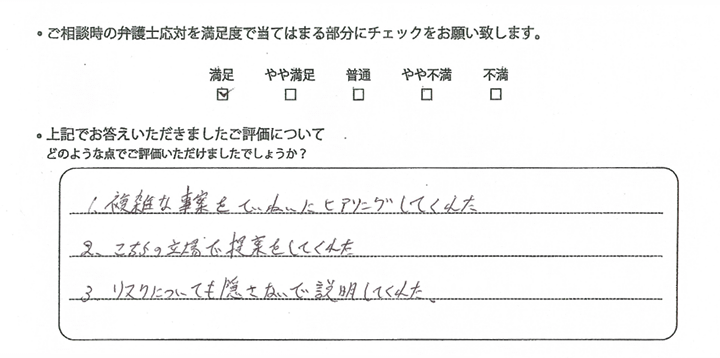 • ご相談時の弁護士応対を満足度で当てはまる部分にチェックをお願い致します。
満足 やや満足 普通 やや不満 不満
☑ □ □ □ □
• 上記でお答えいただきましたご評価について
どのような点でご評価いただけましたでしょうか？
1. 複雑な事案をていねいにヒアリングしてくれた
2. こちらの立場で提案をしてくれた
3 リスクについても隠さないで説明してくれた。